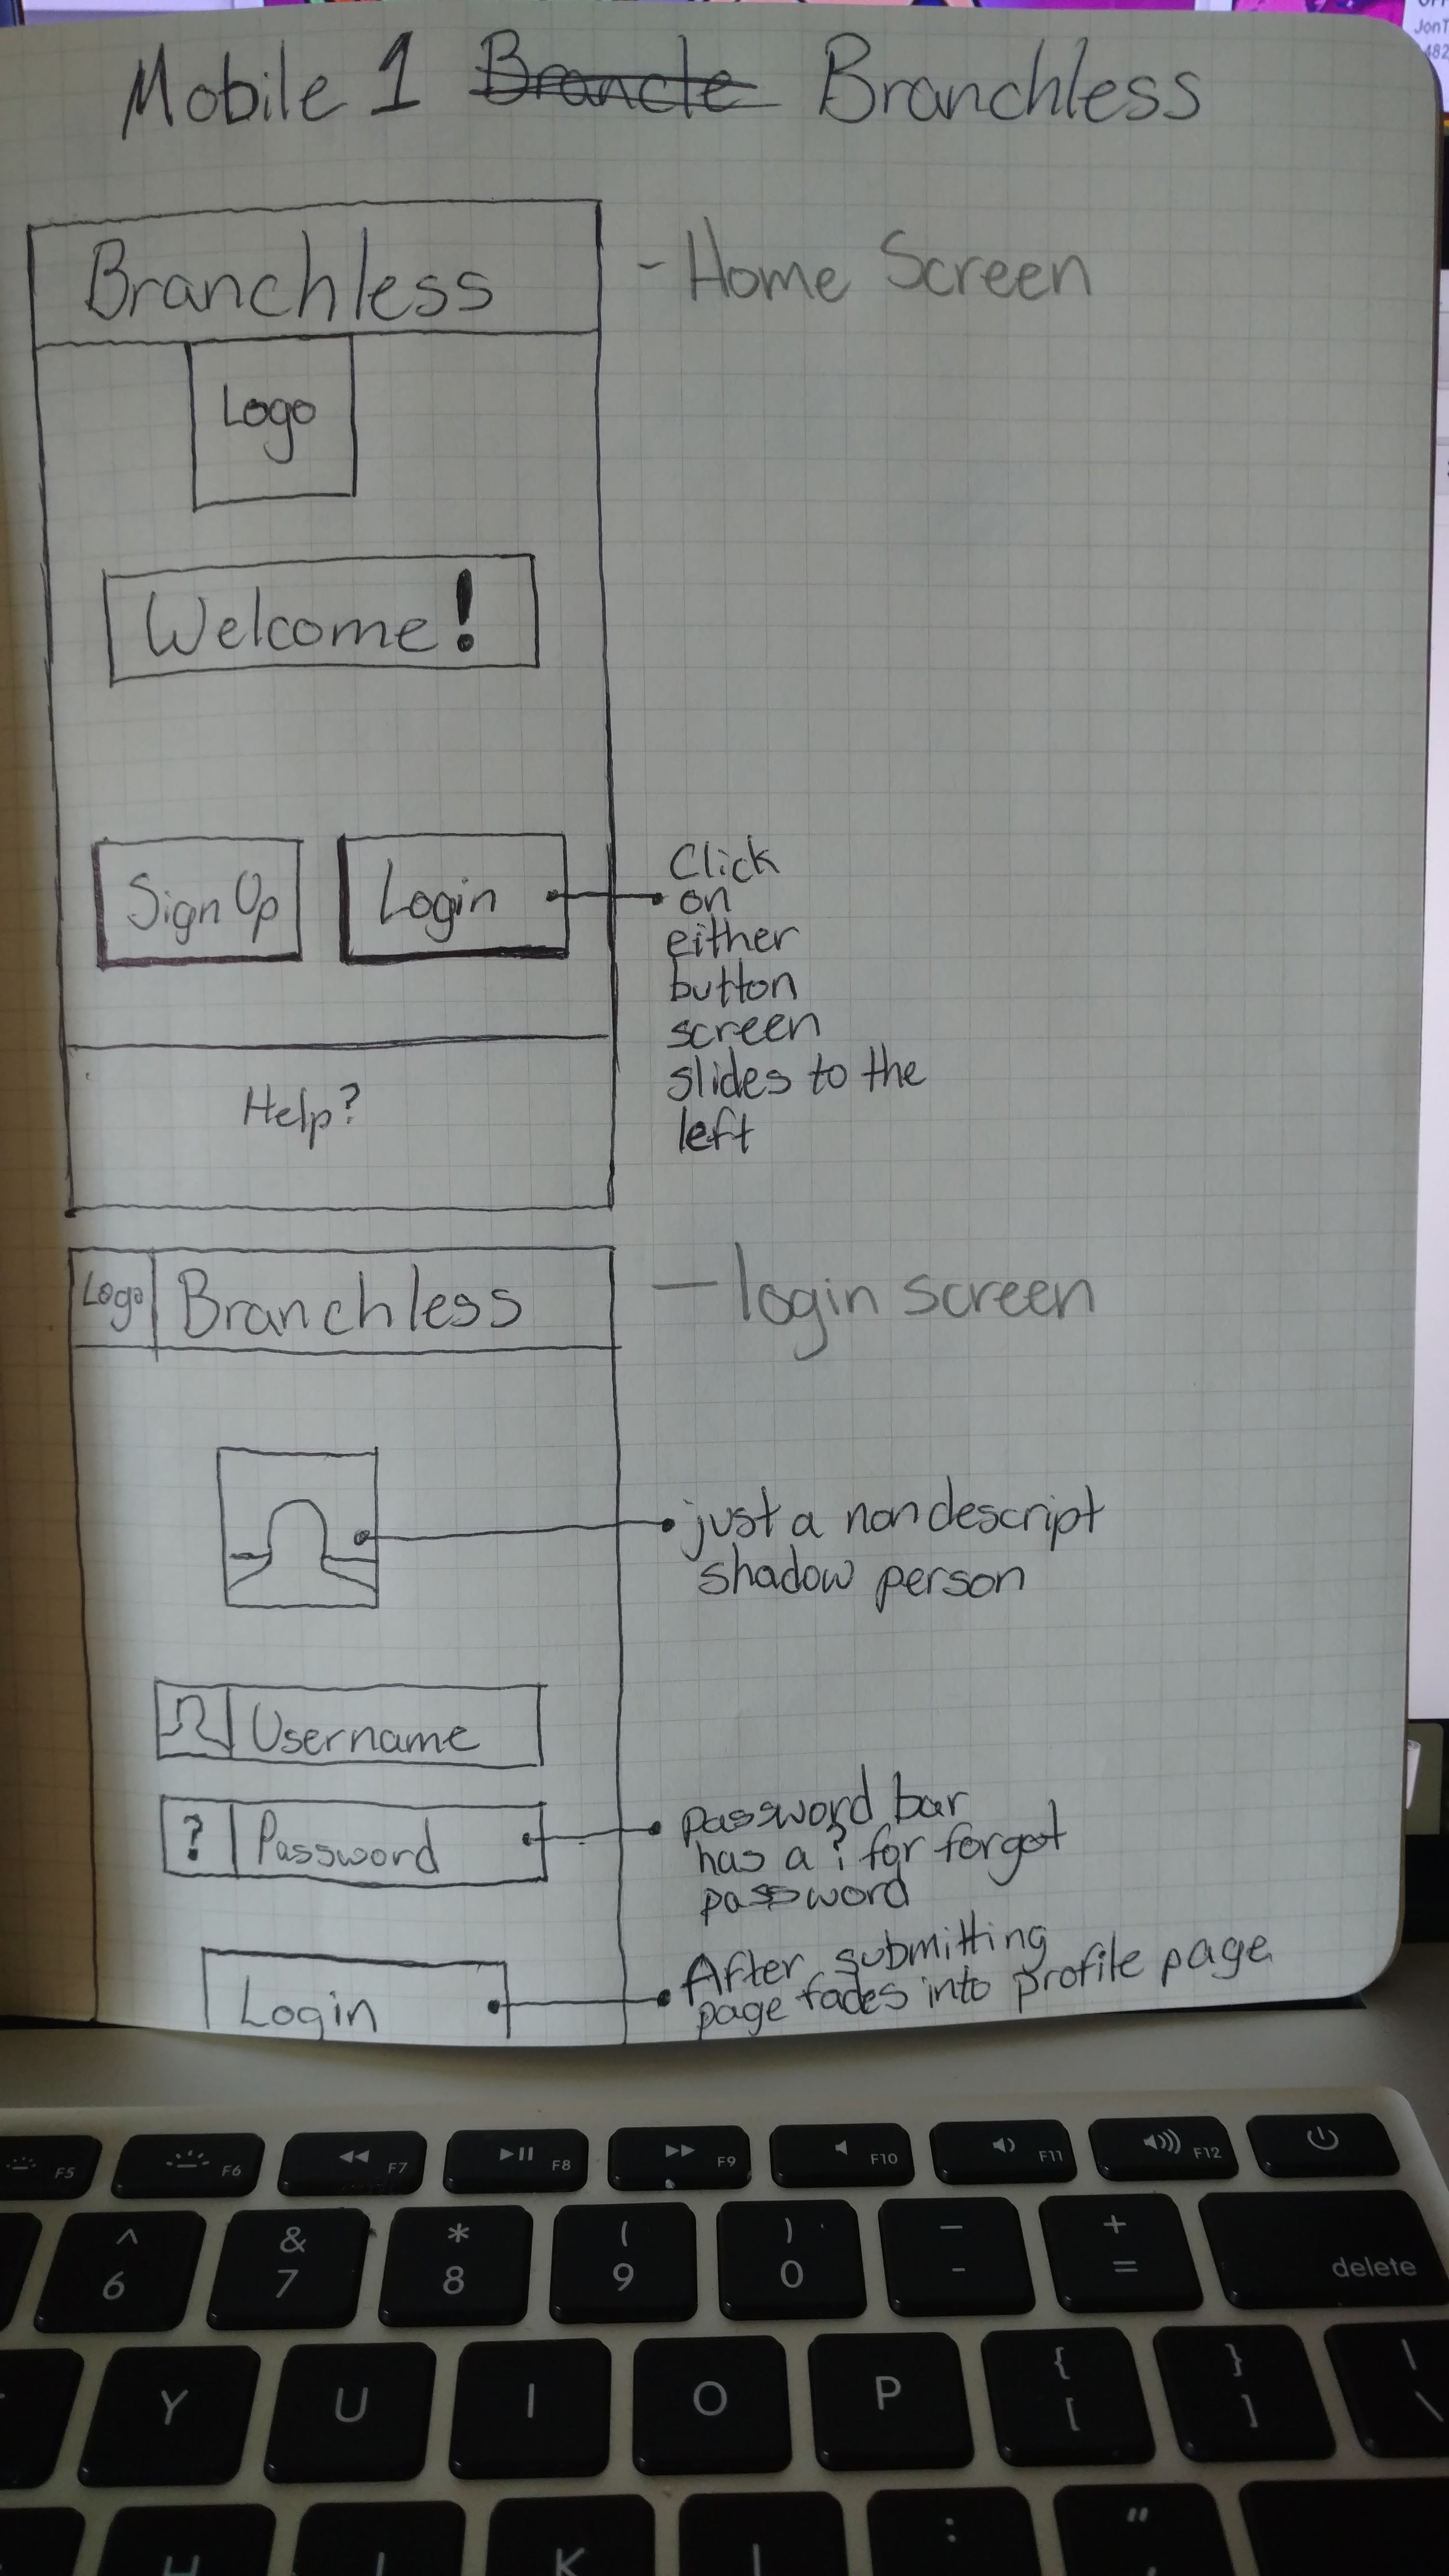 Mobile 1 Brancle Branchless
Branchless
- Home Screen
Logo
Welcome!
Sign Up
Login
Click
on
either
button
screen
slides to the
left
Help?
Logo
Branchless
— login screen
just a nondescript
shadow person
Username
? Password
password bar
has a ? for forgot
password
Login
After submitting
page fades into profile page
F5
F6
F7
F8
F9
F10
F11
F12
^
6
&
7
*
8
(
9
)
0
—
-
+
=
delete
Y
U
I
O
P
{
[
}
]
|
\
H
K
L
:
"
JonT
482